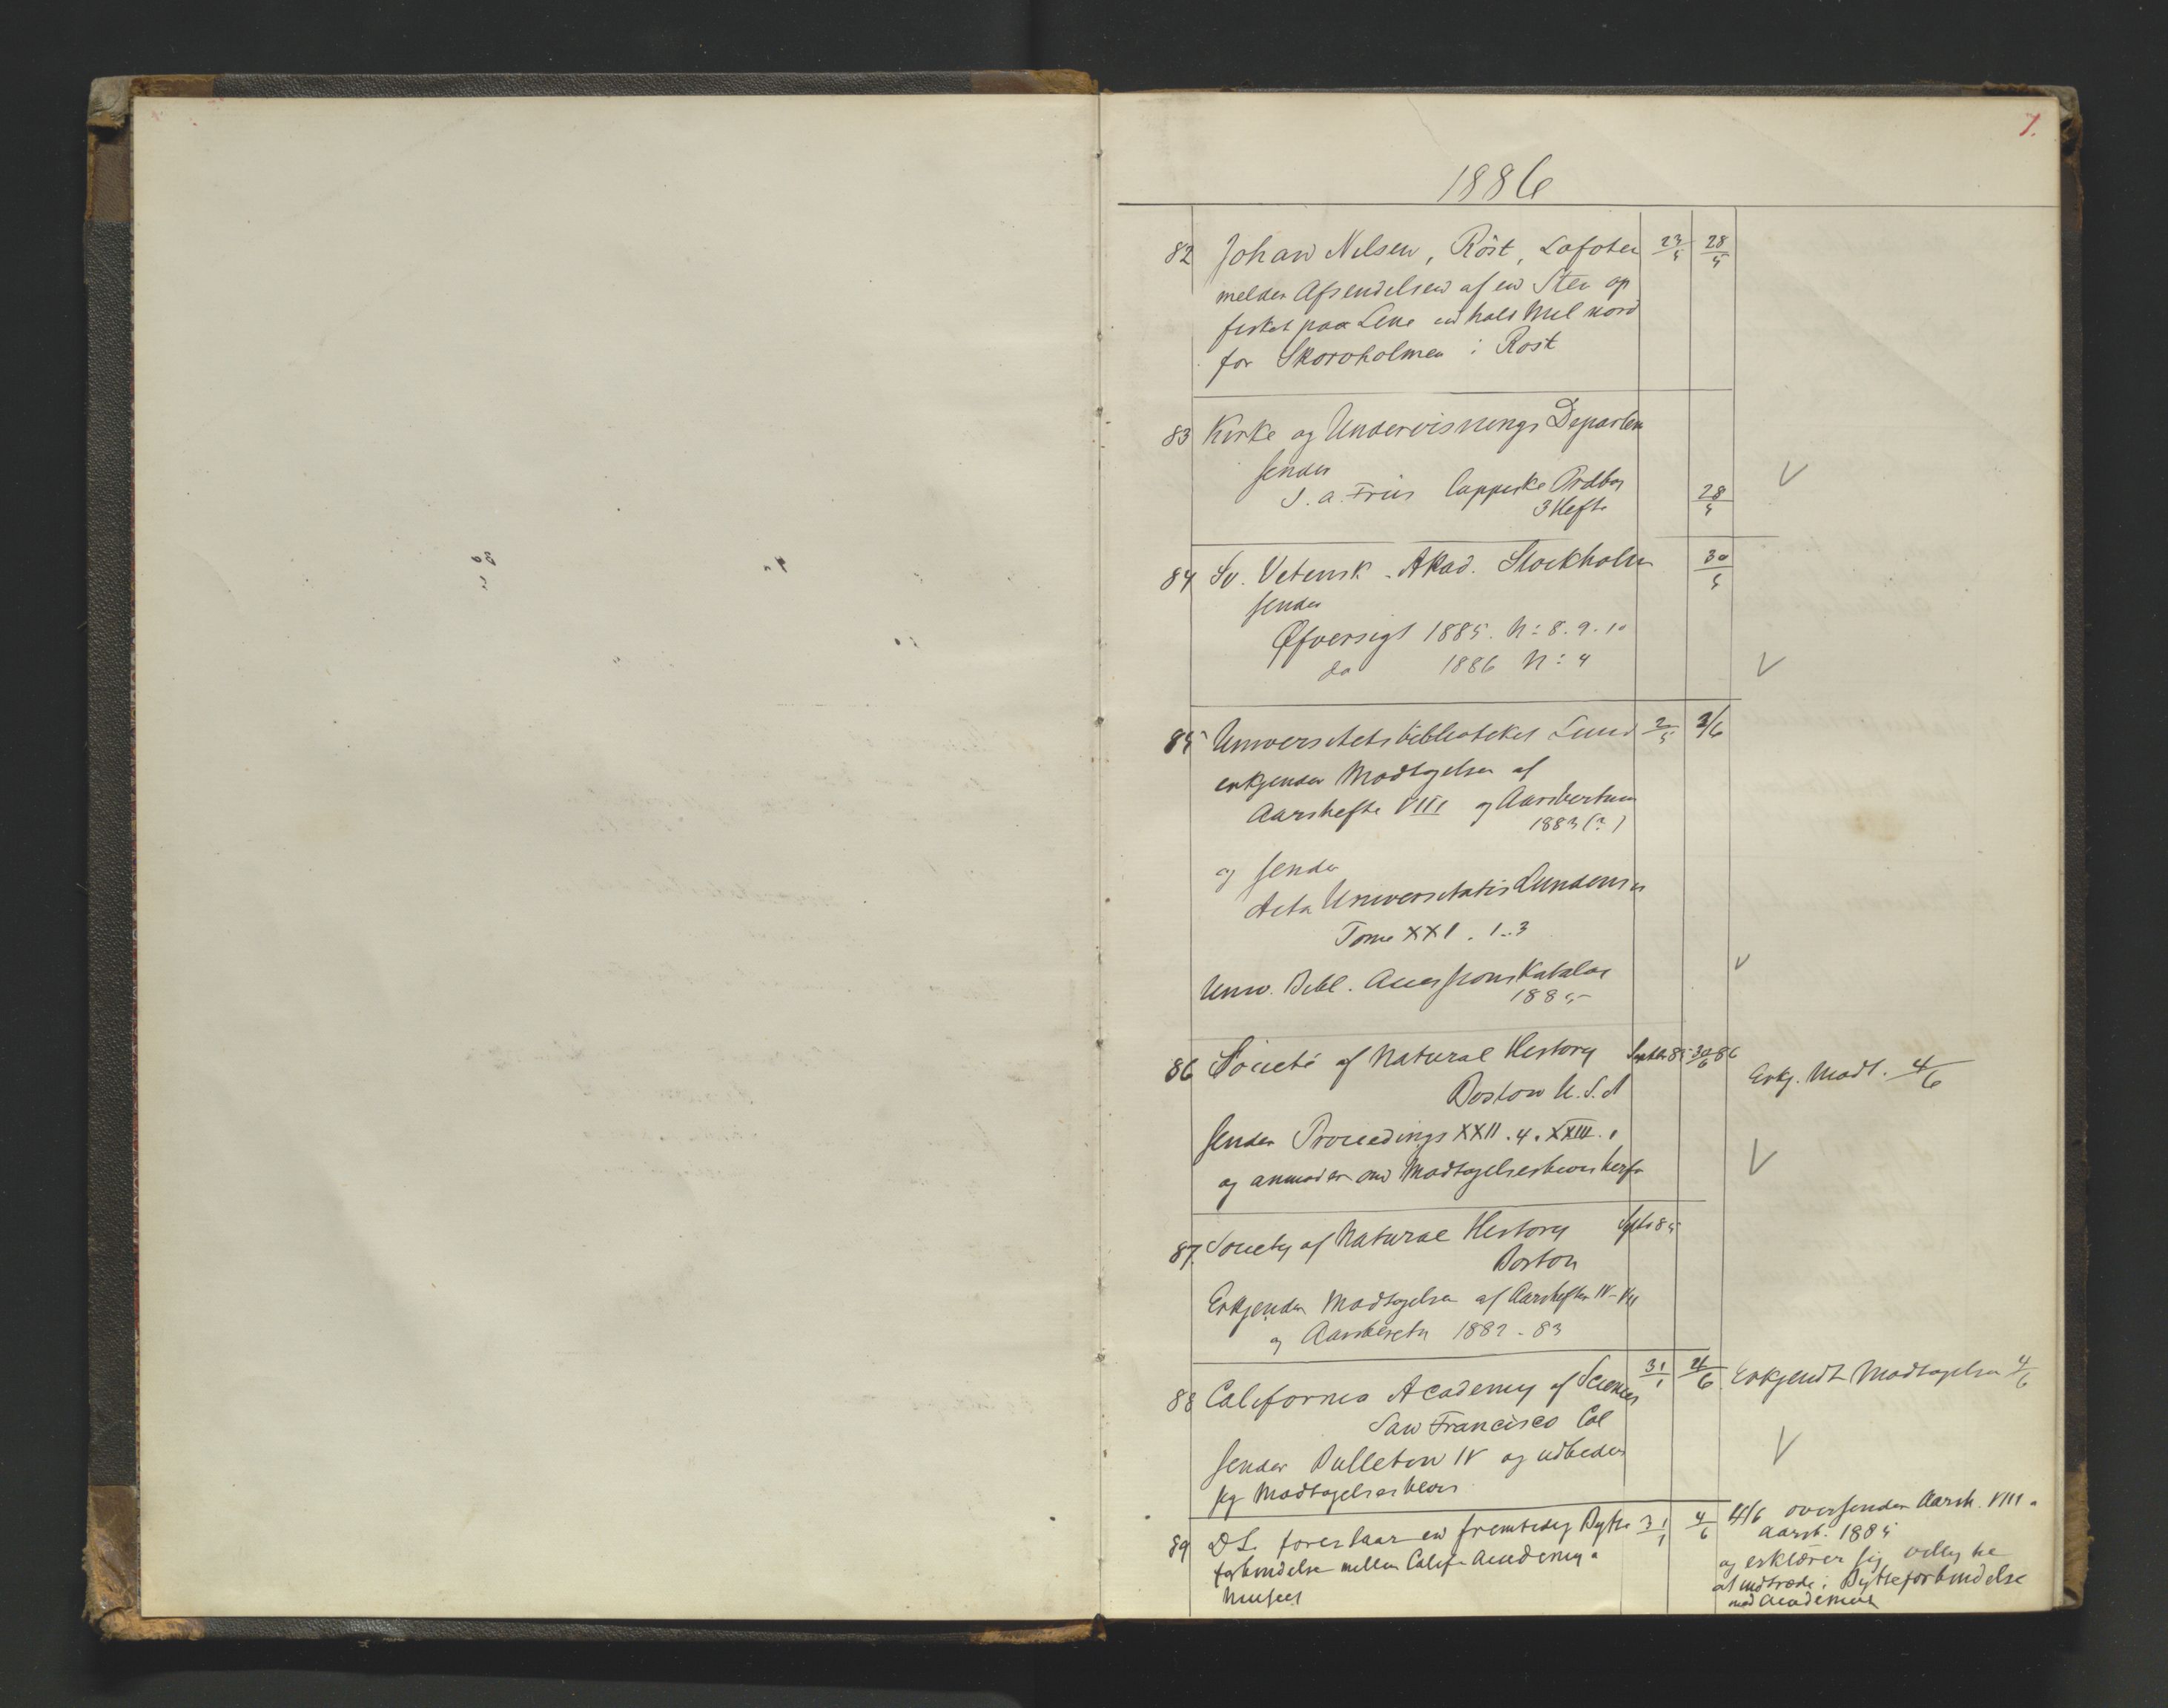 1.
1886
82 Johan Nilsen, Röst, Lofoten 23/5 28/5
melder Afsendelsen af en Sten op
fisket paa Line en halv Mil nord
for Skorvholmen i Röst
83 Kirke og Undervisnings Departem
sender
J. A. Friis Lappiske Ordbog
3 Hefte 28/5
84 Sv. Vetensk. Akad. Stockholm 30/5
sender
Øfversigt 1885. N: 8. 9. 10
do 1886 N: 4
85 Universitetsbiblioteket Lund 2/5 3/6
erkjender Modtagelsen af
Aarshefte VIII og Aarsberetn
1883 (?)
og sender
Acta Universitatis Lundensis
Tome XXI. 1..3
Univ. Bibl. Accessions Katalog
1885
86 Societé of Natural History Septbr 85 30/6 86
Boston U. S. A
Erkj. Modt. 4/6
sender Proceedings XXII. 4. XXIII. 1
og anmoder om Modtagelsesbevis herfor
87. Society of Natural History Septbr 85
Boston
Erkjender Modtagelsen af Aarshefter IV-VII
og Aarsberetn 1882-83
88 California Academy of Sciences 31/1 4/6 Erkjendt Modtagelsen 4/6
San Francisco Cal
sender Bulleton IV og udbeder
sig Modtagelsesbevis
89 D S. foreslaar en fremtidig Bytte 31/1 4/6 4/6 oversender Aarsh. VIII o
forbindelse mellem Calif. Academy o Aarsb. 1884
Museet og erklærer sig villig til
at indtræde i Bytteforbindelse
med Academiet